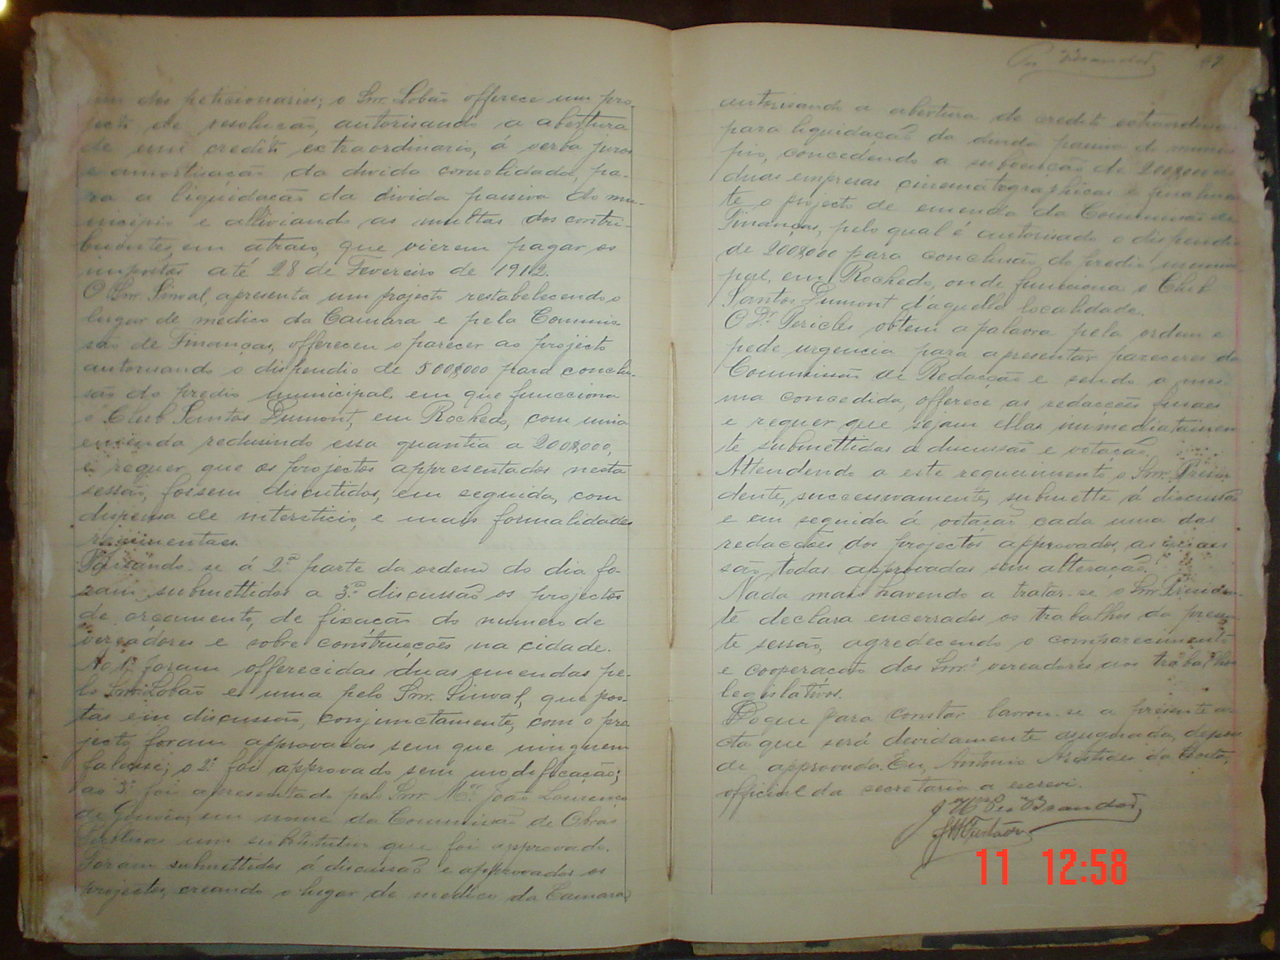 dos peticionarios; o Snr. Lobão offerece um pro-
jecto de resolução, autorisando a abertura
de um credito extraordinario, á verba juros
e amortisação da divida consolidada, pa-
ra a liquidação da divida passiva do mu-
nicipio e alliviando as multas dos contri-
buentes, em atraso, que vierem pagar os
impostos até 28 de Fevereiro de 1912.
O Snr. Sinval, apresenta um projecto restabelecendo o
lugar de medico da Camara e pela Commis-
são de Finanças, offereceu o parecer ao projecto
autorisando o dispendio de 500$000 para conclu-
são do predio municipal em que funcciona
o Club Santos Dumont, em Rochedo, com uma
emenda redusindo essa quantia a 200$000,
e requer que os projectos appresentados nesta
sessão, fossem discutidos, em seguida, com
dispensa de intersticio, e mais formalidades
regimentaes.
Passando-se á 2ª parte da ordem do dia fo-
ram submettidos a 3ª discussão os projectos
de orçamento, de fixação do numero de
vereadores e sobre construcções na cidade.
Ao 1º foram offerecidas duas emendas pe-
lo Snr. Lobão e uma pelo Snr. Sinval, que pos-
tas em discussão, conjunctamente, com o pro-
jecto foram approvadas sem que ninguem
fallasse; o 2º foi approvado sem modificação;
ao 3º foi apresentado pelo Snr. Mor João Lourenço
de em nome da Commissão de Obras
um substitutivo que foi approvado.
Foram submettidos á discussão e approvados os
projectos, creando o lugar de medico da Camara,
67
autorisando a abertura do credito extraordinario
para liquidação da divida passiva do munici-
pio, concedendo a subvenção de 200$000 as
duas empresas cinematographicas e finalmen-
te o projecto de emenda da Commissão de
Finanças, pelo qual é autorisado o dispendio
de 200$000 para conclusão do predio munici-
pal, em Rochedo, onde funcciona o Club
Santos Dumont d'aquella localidade.
O Dr. Pericles obtem a palavra pela ordem e
pede urgencia para apresentar pareceres da
Commissão de Redacção e sendo a mes-
ma concedida, offerece as redacções finaes
e requer que sejam ellas immediatamen-
te submettidas a discussão e votação.
Attendendo a este requerimento o Snr. Presi-
dente, successivamente, submette á discussão
e em seguida á votação cada uma das
redacções dos projectos approvados, as
são todas approvadas sem alteração.
Nada mais havendo a tratar-se o Snr. Presiden-
te declara encerrados os trabalhos da presen-
te sessão, agradecendo o comparecimento
e cooperação dos Snrs. vereadores aos trabalhos
legislativos.
Do que para constar lavrou-se a presente a-
cta que será devidamente assignada, depois
de approvada. Eu, Antonio Aristides da
official da secretaria a escrevi.
Brandão
11 12:58